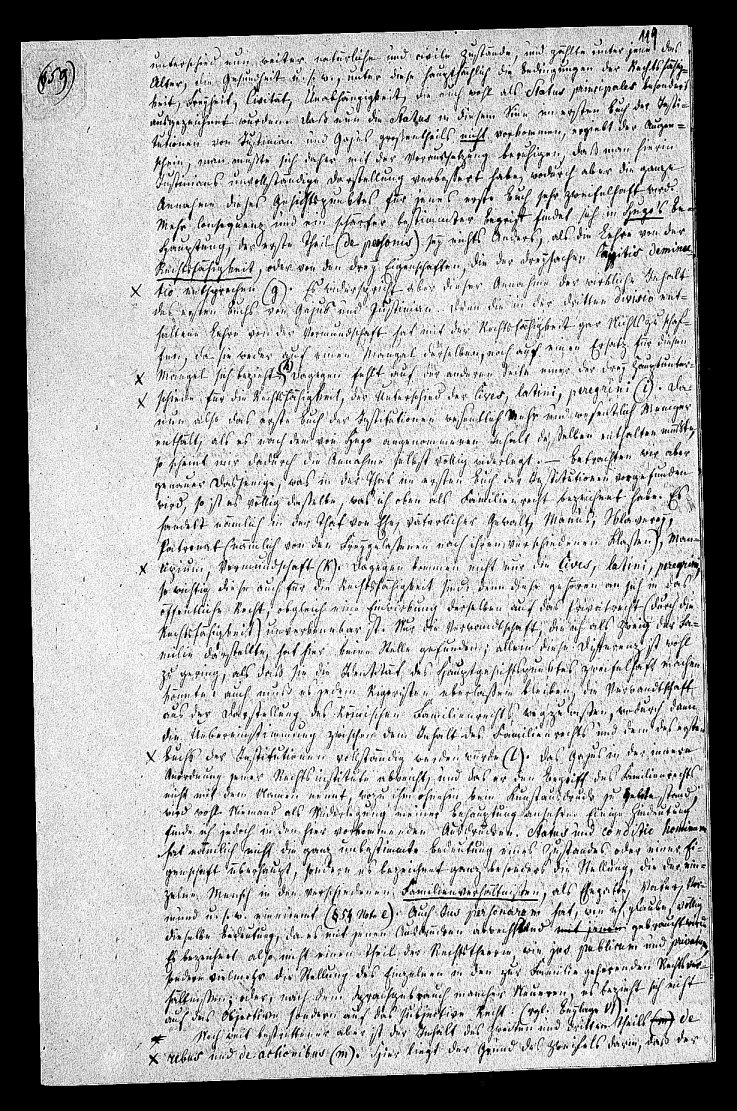 119
(659)
unterschied nun weiter natürliche und civile Zustände, und zählte unter jene das
Alter, die Gesundheit u. s. w., unter diese hauptsächlich die Bedingungen der Rechtsfähig-
keit, Freyheit, Civität, Unabhängigkeit, die auch wohl als Status principales besonders
ausgezeichnet wurden. Daß nun die Status in diesem Sinn im ersten Buch der Insti-
tutionen von Justinian und Gajus großentheils nicht vorkommen, ergiebt der Augen-
schein, man mußte sich daher mit der Voraussetzung beruhigen, daß man hierin
Justinians unvollständige Darstellung verbessert habe, wodurch aber die ganze
Annahme dieses Gesichtspunktes für jenes erste Buch sehr zweifelhaft wird.
Mehr Consequenz und ein scharfer bestimmter Begriff findet sich in Hugo's Be-
hauptung, der erste Theil (de personis) sey nichts Anders, als die Lehre von der
Rechtsfähigkeit, oder von den drey Eigenschaften, die der dreyfachen Capitis deminu-
tio entsprechen (g). Es widerspricht aber dieser Annahme der wirkliche Inhalt
des ersten Buchs von Gajus und Justinian. Denn die in der dritten Divisio ent-
haltene Lehre von der Vormundschaft hat mit der Rechtsfähigkeit gar Nichts zu schaf-
fen, da sie weder auf einem Mangel derselben, noch auf einen Ersatz für diesen
Mangel sich bezieht (h). Dagegen fehlt auf der anderen Seite einer der drey Hauptunter-
schiede für die Rechtsfähigkeit, der Unterschied der Cives, latini, peregrini (i). Da
nun also das erste Buch der Institutionen wesentlich Mehr und wesentlich Weniger
enthält, als es nach dem von Hugo angenommenen Inhalt desselben enthalten müßte,
so scheint mir dadurch die Annahme selbst völlig widerlegt. — Betrachten wir aber
genauer Dasjenige, was in der That im ersten Buch der Institutionen vorgefunden
wird, so ist es völlig dasselbe, was ich oben als Familienrecht bezeichnet habe. Es
handelt nämlich in der That von Ehe, väterlicher Gewalt, Manus, Sklaverey,
Patronat (nämlich von den Freygelassenen nach ihren verschiedenen Klassen), Man-
cipium, Vormundschaft (k). Dagegen kommen nicht vor die Cives, latini, peregrini,
so wichtig diese auch für die Rechtsfähigkeit sind: denn diese gehören an sich in das
öffentliche Recht, obgleich eine Einwirkung derselben auf das Privatrecht (durch die
Rechtsfähigkeit) unverkennbar ist. Nur die Verwandtschaft, die ich als Zweig der Fa-
milie darstellte, hat hier keine Stelle gefunden; allein diese Differenz ist wohl
zu gering, als daß sie die Identität des Hauptgesichtspunktes zweifelhaft machen
könnte: auch muß es jedem Rigoristen überlassen bleiben, die Verwandtschaft
aus der Darstellung des Römischen Familienrechts wegzulassen, wodurch dann
die Uebereinstimmung zwischen dem Inhalt des Familienrechts und dem des ersten
Buchs der Institutionen vollständig werden würde (l). Daß Gajus in der innern
Anordnung jener Rechtsinstitute abweicht, und daß er den Begriff des Familienrechts
nicht mit dem Namen nennt, wozu ihm ohnehin kein Kunstausdruck zu Gebote stand,
wird wohl Niemand als Widerlegung meiner Behauptung ansehen. Einige Hindeutung
finde ich jedoch in den hier vorkommenden Ausdrücken. Status und conditio hominum
hat nämlich nicht die ganz unbestimmte Bedeutung eines Zustandes oder einer Ei-
genschaft überhaupt, sondern es bezeichnet ganz besonders die Stellung, die der ein-
zelne Mensch in den verschiedenen Familienverhältnissen, als Ehegatte, Vater, Vor-
mund u. s. w. einnimmt (§ 59 Note e). Auch Ius personarum hat, wie ich glaube, völlig
dieselbe Bedeutung, da es mit jenen Ausdrücken abwechselnd gebraucht wird.
Es bezeichnet also nicht einen Theil der Rechtstheorie, wie jus publicum und privatum,
sondern vielmehr die Stellung des Einzelnen in den zur Familie gehörenden Rechtsver-
hältnissen; oder, nach dem Sprachgebrauch mancher Neueren, es bezieht sich nicht
auf das Objective sondern auf das subjective Recht. (vgl. Beylage VI).
Noch mit bestrittener aber ist der Inhalt des zweiten und dritten Theils de
rebus und de actionibus (m). Hier liegt der Grund des Zweifels darin, daß der